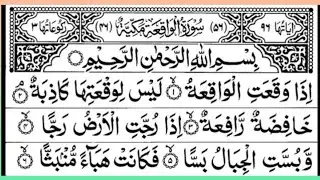 اٰیَاتُهَا ۹۶ (۵۶) سُوْرَةُ الْوَاقِعَةِ مَكِّیَّةٌ (۴۶) رُكُوْعَاتُهَا ۳
بِسْمِ اللّٰهِ الرَّحْمٰنِ الرَّحِیْمِ
اِذَا وَقَعَتِ الْوَاقِعَةُ ۙ۱ لَیْسَ لِوَقْعَتِهَا كَاذِبَةٌ ۘ۲
خَافِضَةٌ رَّافِعَةٌ ۙ۳ اِذَا رُجَّتِ الْاَرْضُ رَجًّا ۙ۴
وَّبُسَّتِ الْجِبَالُ بَسًّا ۙ۵ فَكَانَتْ هَبَآءً مُّنْۢبَثًّا ۙ۶